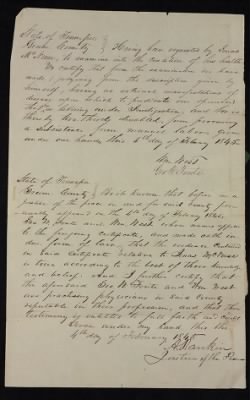 State of Tennessee
Greene County } Having been requested by Isaac
to examine into the condition of his health
We certify that from the examination we have
made, judging from the description given by
himself, being no external manifestations of
disease upon which to predicate an opinion
that he labors under and has
thereby been totally disabled, from procuring
a subsistence from manual labour, given
under our hands this 4th day of February 1845
Wm West

State of Tennessee
Greene County } Be it known that before me a
justice of the peace in and for said County per-
sonally appeared on the 4th day of February 1845,
and Wm West whose names appear
to the foregoing certificate, and made oath in
due form of law, that the evidence contained
in said certificate relative to Isaac
is true according to the best of their knowledge
and belief. And I further certify that
the aforesaid Geo W and Wm West
are practising physicians in said County
reputable in their profession, and that their
testimony is entitled to full faith and credit
Given under my hand this the
4th day of February 1845
Rankin
Justice of the Peace